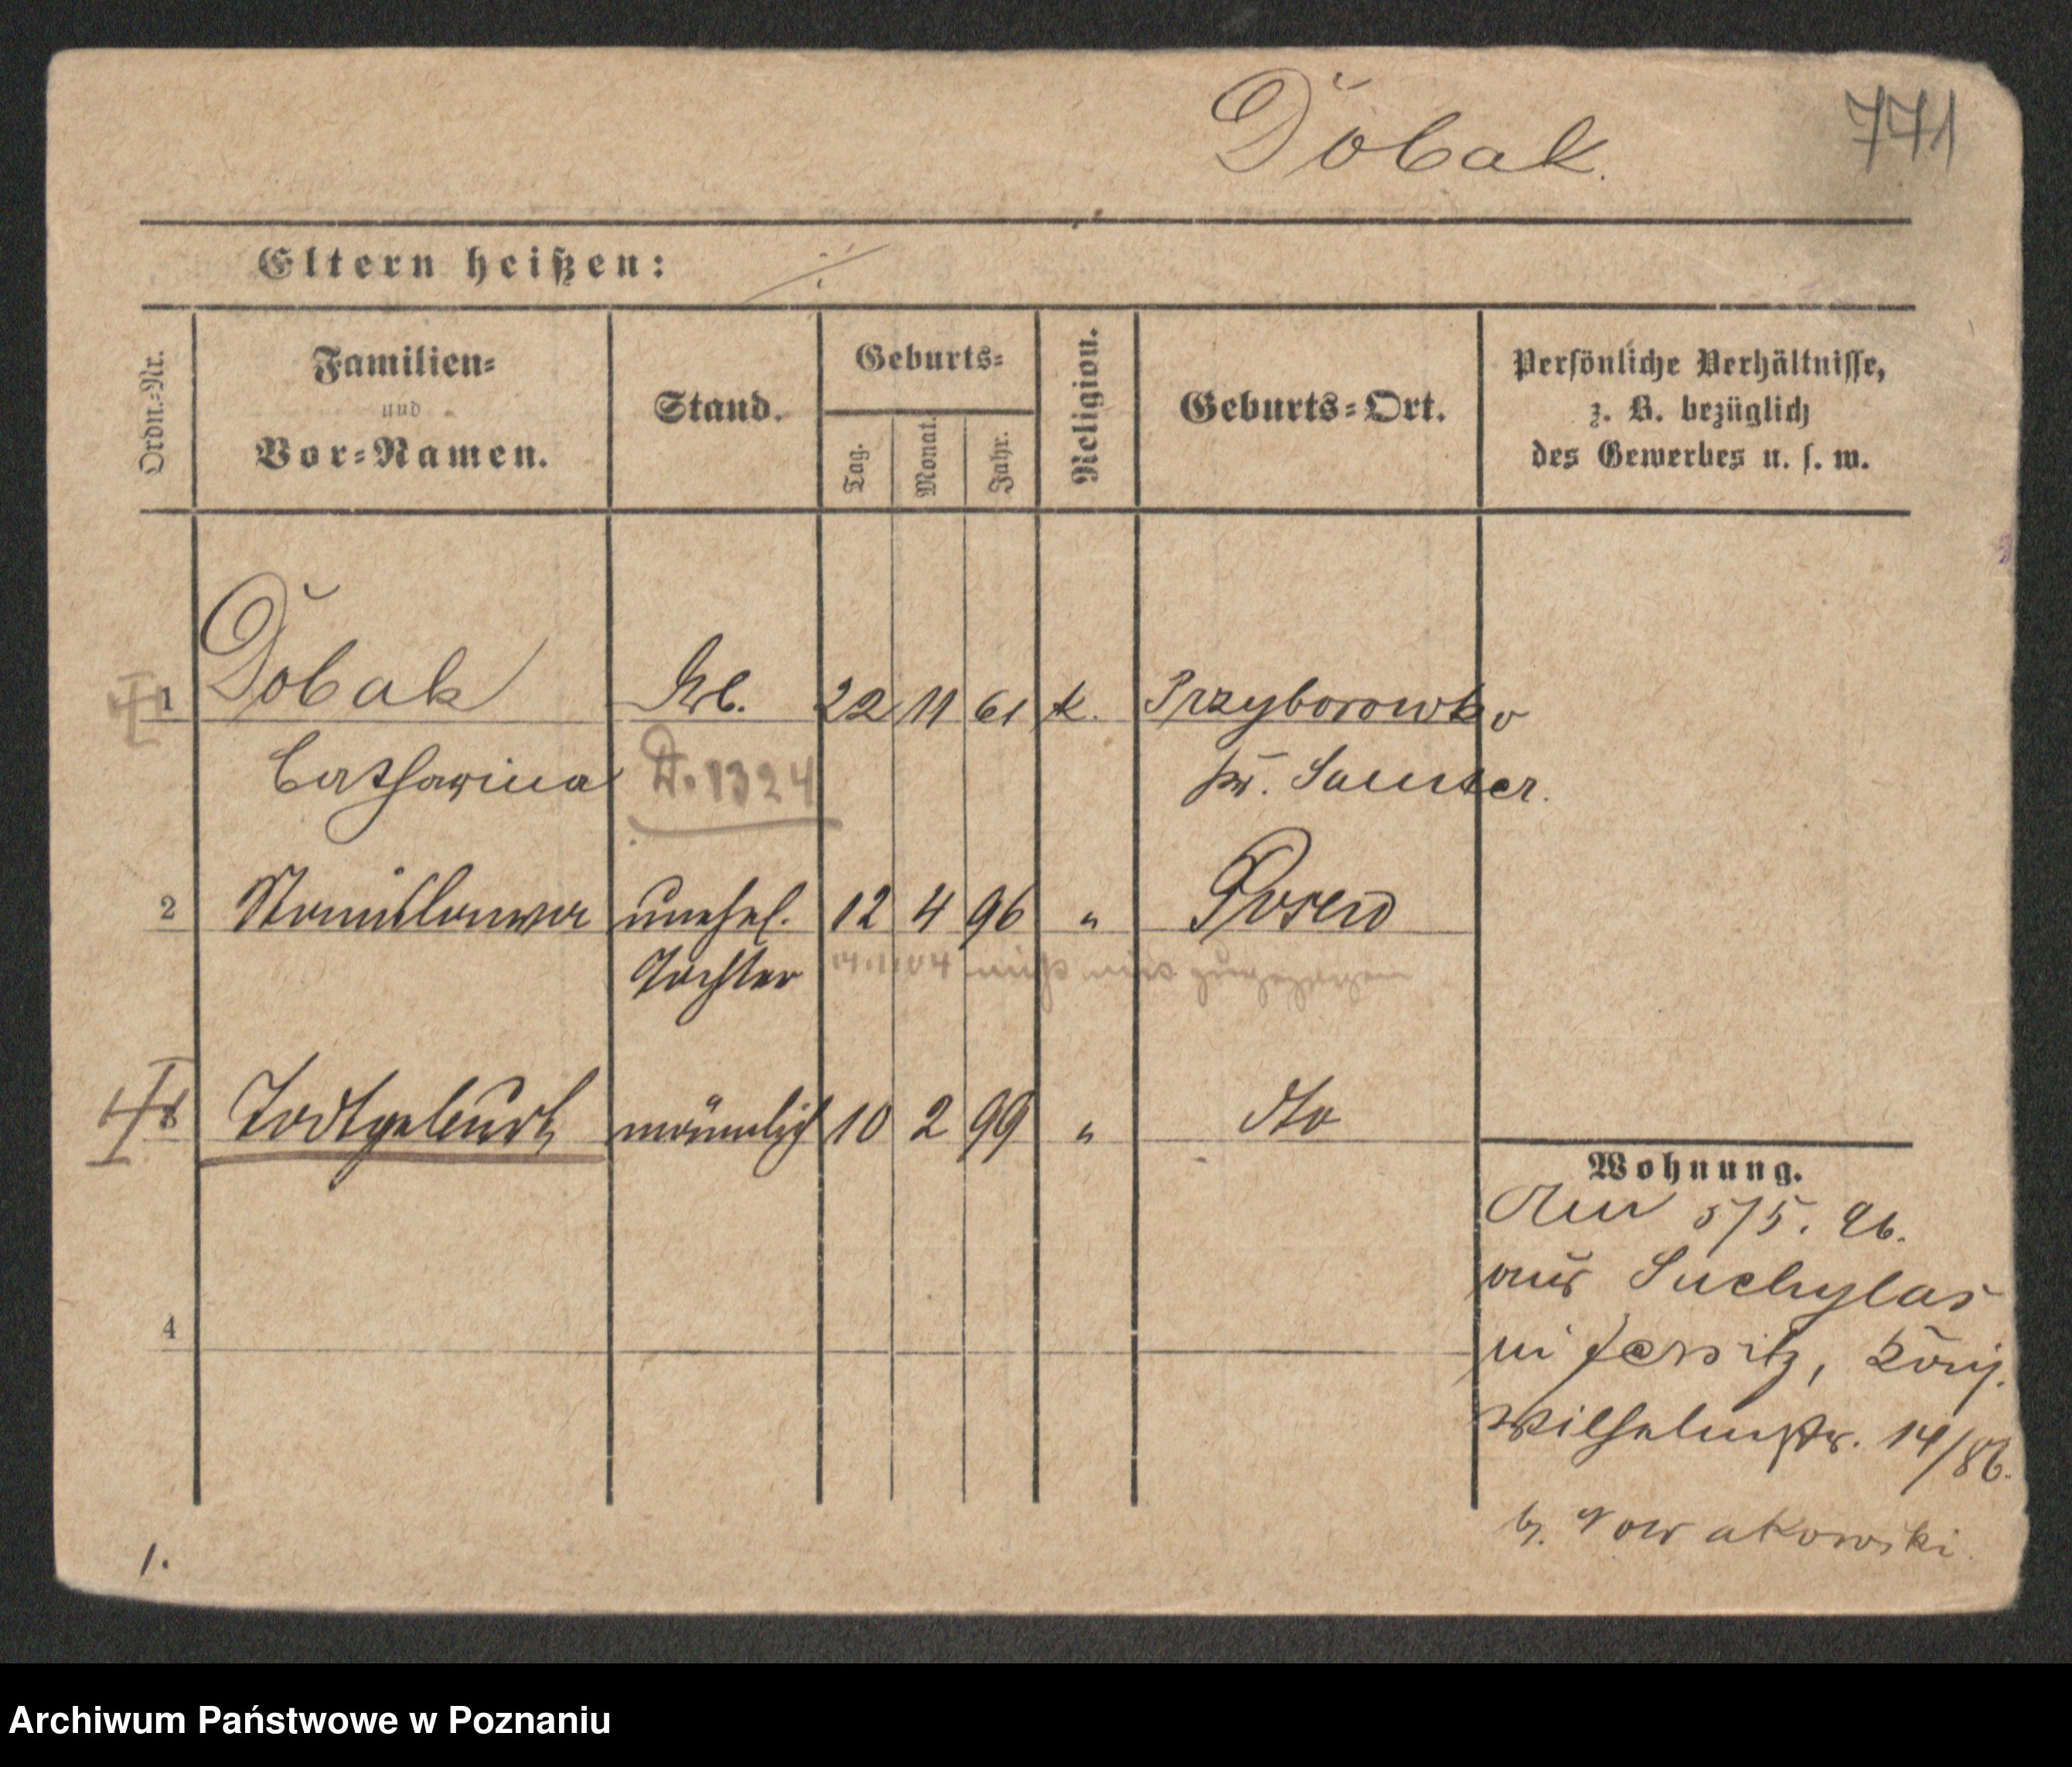 Dŏbak.
771
Eltern heißen:
Ordn.-Nr.
Familien-
und
Vor-Namen.
Stand.
Geburts-
Tag.
Monat.
Jahr.
Religion.
Geburts-Ort.
Persönliche Verhältnisse,
z. B. bezüglich
des Gewerbes u. s. w.
1 Dŏbak Arb. 22 11 61 k. Przyborowko
Catharina D. 1324 pr. Samter.
2 Stanislawa unehel. 12 4 96 " Posen
Tochter 14.1.04 zugezogen
Todtgeburt männlich 10 2 99 " dto
4
Wohnung.
5/5. 96.
aus Suchylas
in Jersitz,
Wilhelmstr. 14/86.
b. Nowakowski.
1.
Archiwum Państwowe w Poznaniu